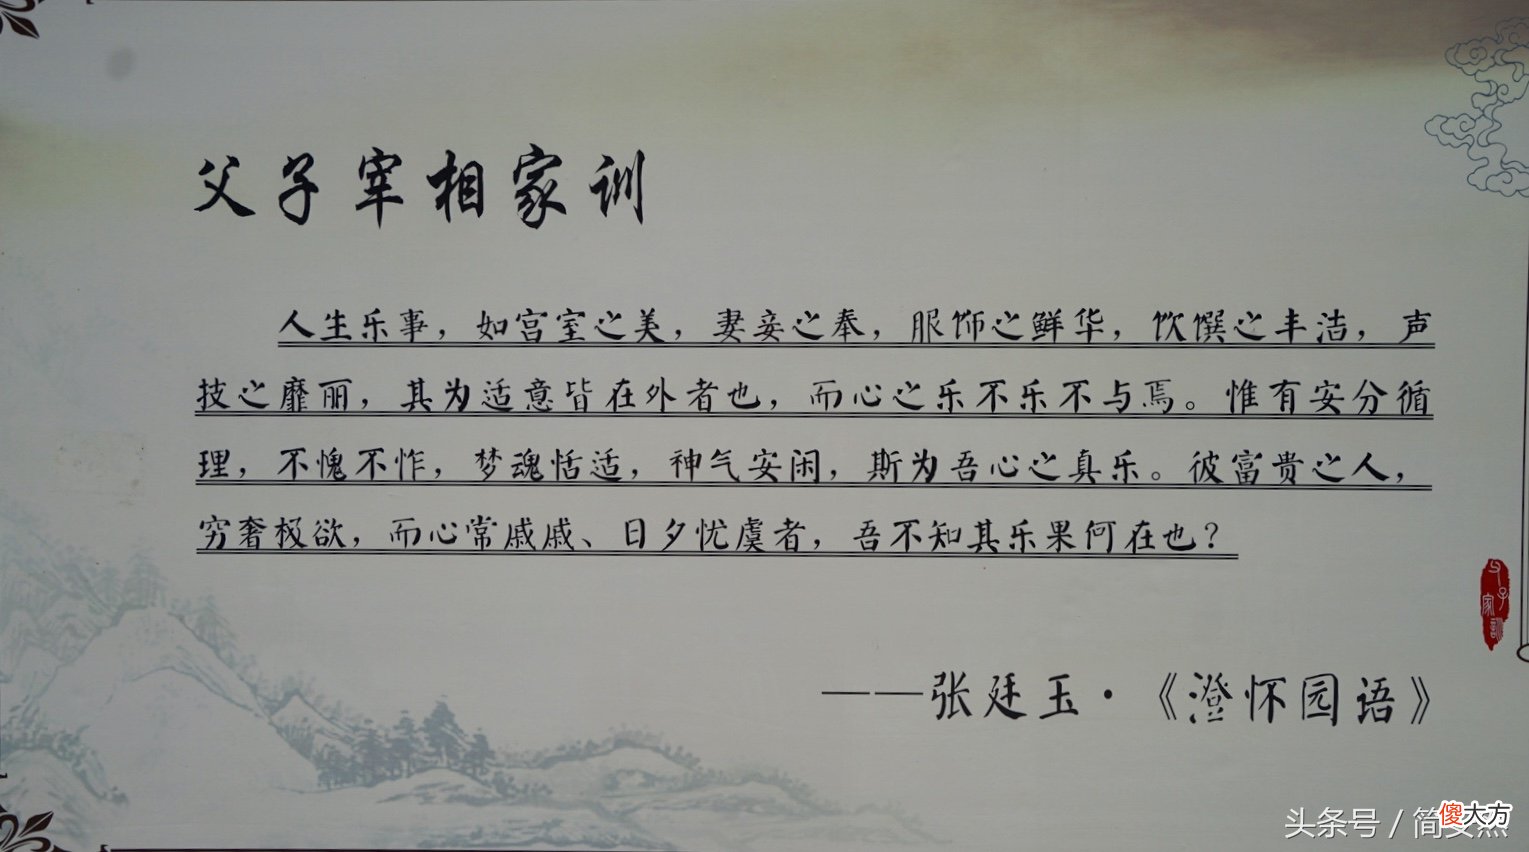 父子宰相家训
人生乐事，如宫室之美，妻妾之奉，服饰之鲜华，饮馔之丰洁，声
技之靡丽，其为适意皆在外者也，而心之乐不乐不与焉。惟有安分循
理，不愧不怍，梦魂恬适，神气安闲，斯为吾心之真乐。彼富贵之人，
穷奢极欲，而心常戚戚、日夕忧虞者，吾不知其乐果何在也？
父子
家训
——张廷玉·《澄怀园语》
头条号 / 简
傻大方